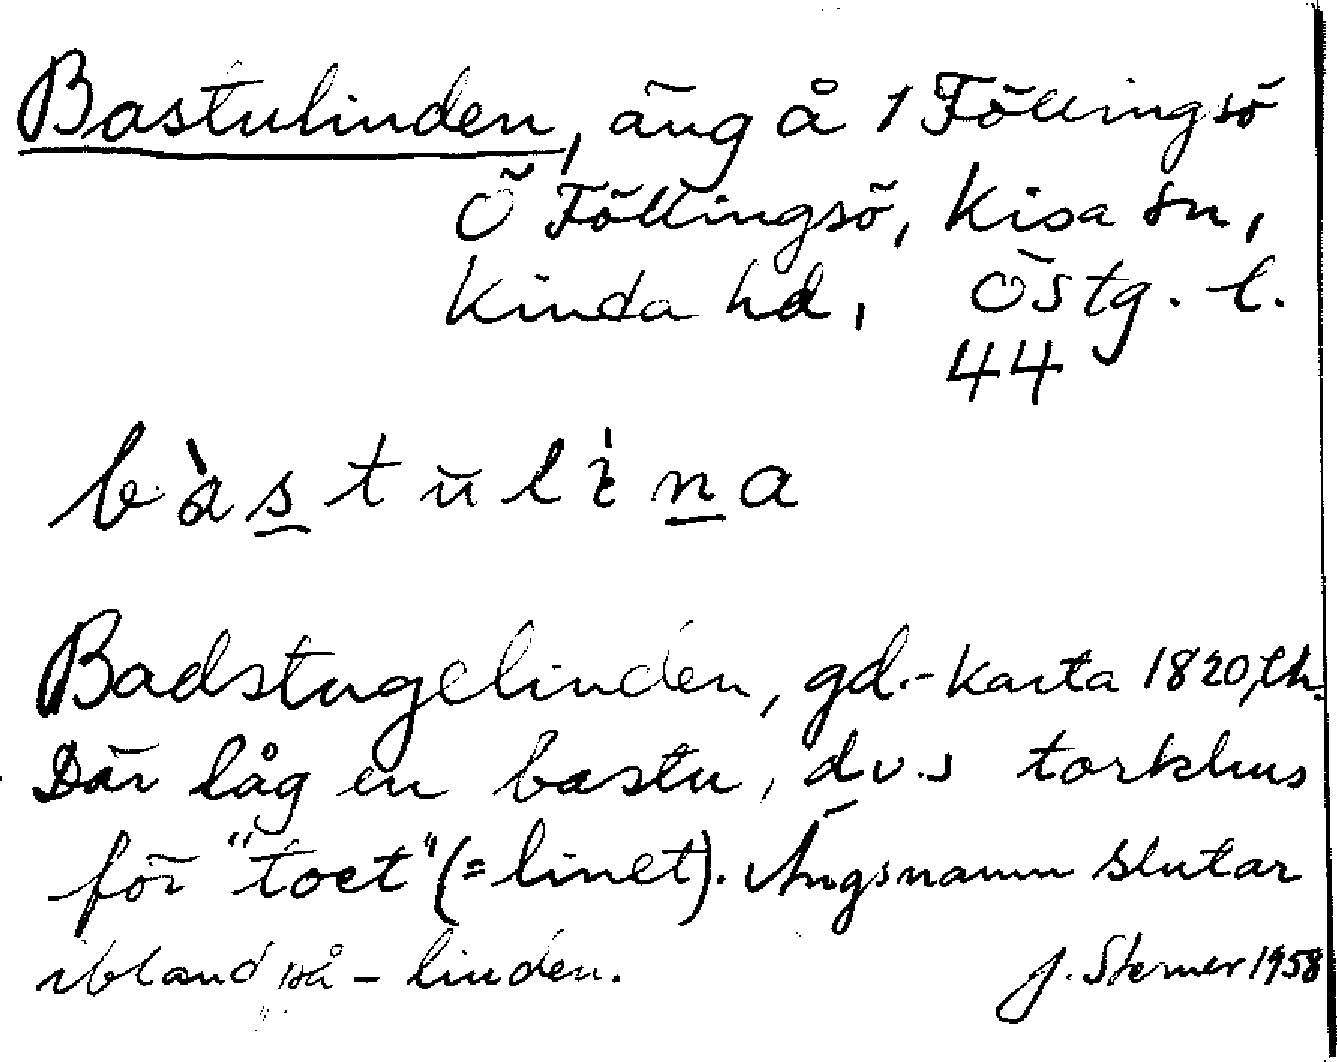 Bastulinden, äng å 1 Föllingsö
Ö Föllingsö, Kisa sn,
Kinda hd, Östg. l.
44
bàstulìna
Badstugelinden, gd.-karta 1820, lh.
Där låg en bastu, dv.s torkhus
för "toet" (=linet). Ängsnamn slutar
ibland på - linden.
J. Sterner 1958